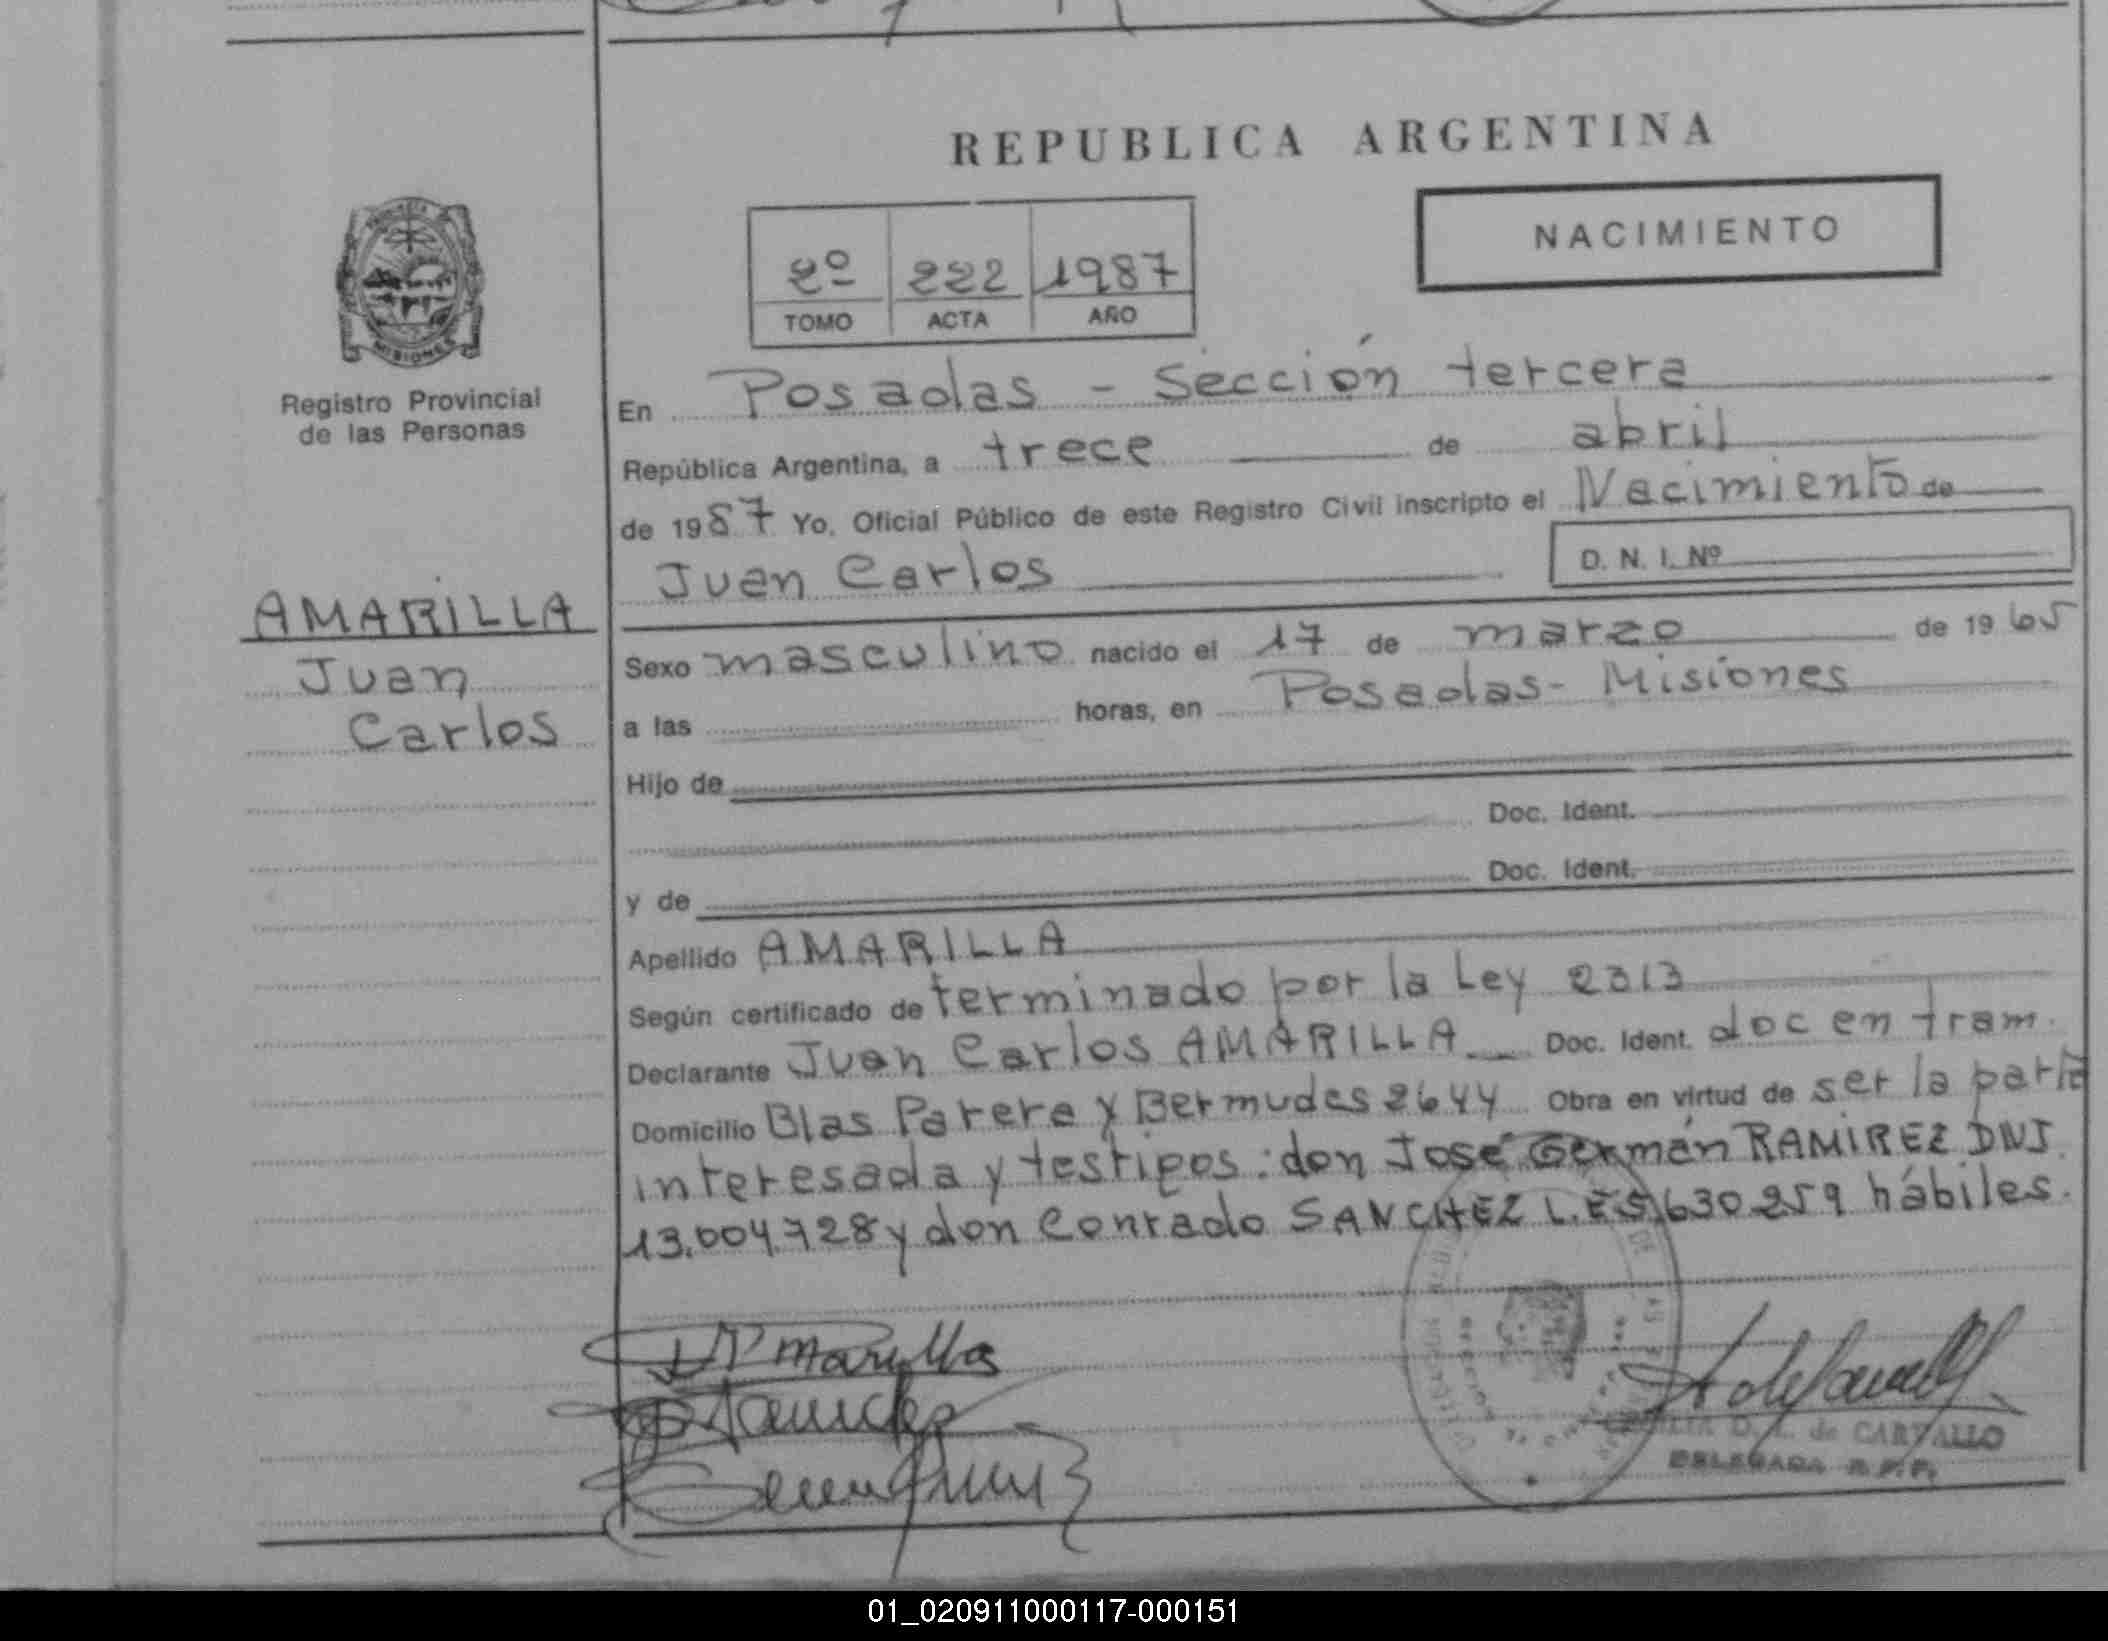 REPUBLICA ARGENTINA
NACIMIENTO
2º 222 1987
TOMO ACTA AÑO
MISIONES
Registro Provincial
de las Personas
En Posadas - Sección tercera
República Argentina, a trece de abril
de 1987 Yo, Oficial Público de este Registro Civil inscripto el Nacimiento de
Juan Carlos D. N. I. Nº
AMARILLA
Juan
Carlos
Sexo masculino nacido el 17 de marzo de 1965
a las horas, en Posadas - Misiones
Hijo de
Doc. Ident.
y de Doc. Ident.
Apellido AMARILLA
Según certificado de terminado por la Ley 2313
Declarante Juan Carlos AMARILLA Doc. Ident. doc en tram.
Domicilio Blas Parera y Bermudes 2644 Obra en virtud de ser la parte
interesada y testigos: don José Germán RAMIREZ DNI
13.004.728 y don Conrado SANCHEZ L.E 5.630.259 hábiles.
D. L. de CARVALLO
DELEGADA R. P. P.
01_020911000117-000151